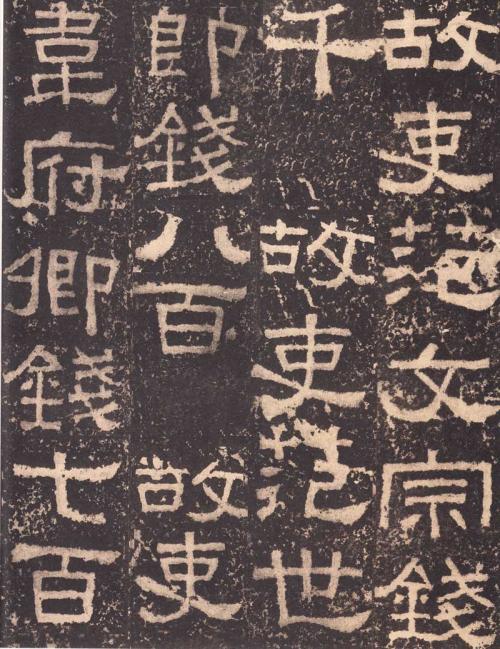 故吏范文宗錢
千 故吏范世
節錢八百 故吏
韋府卿錢七百